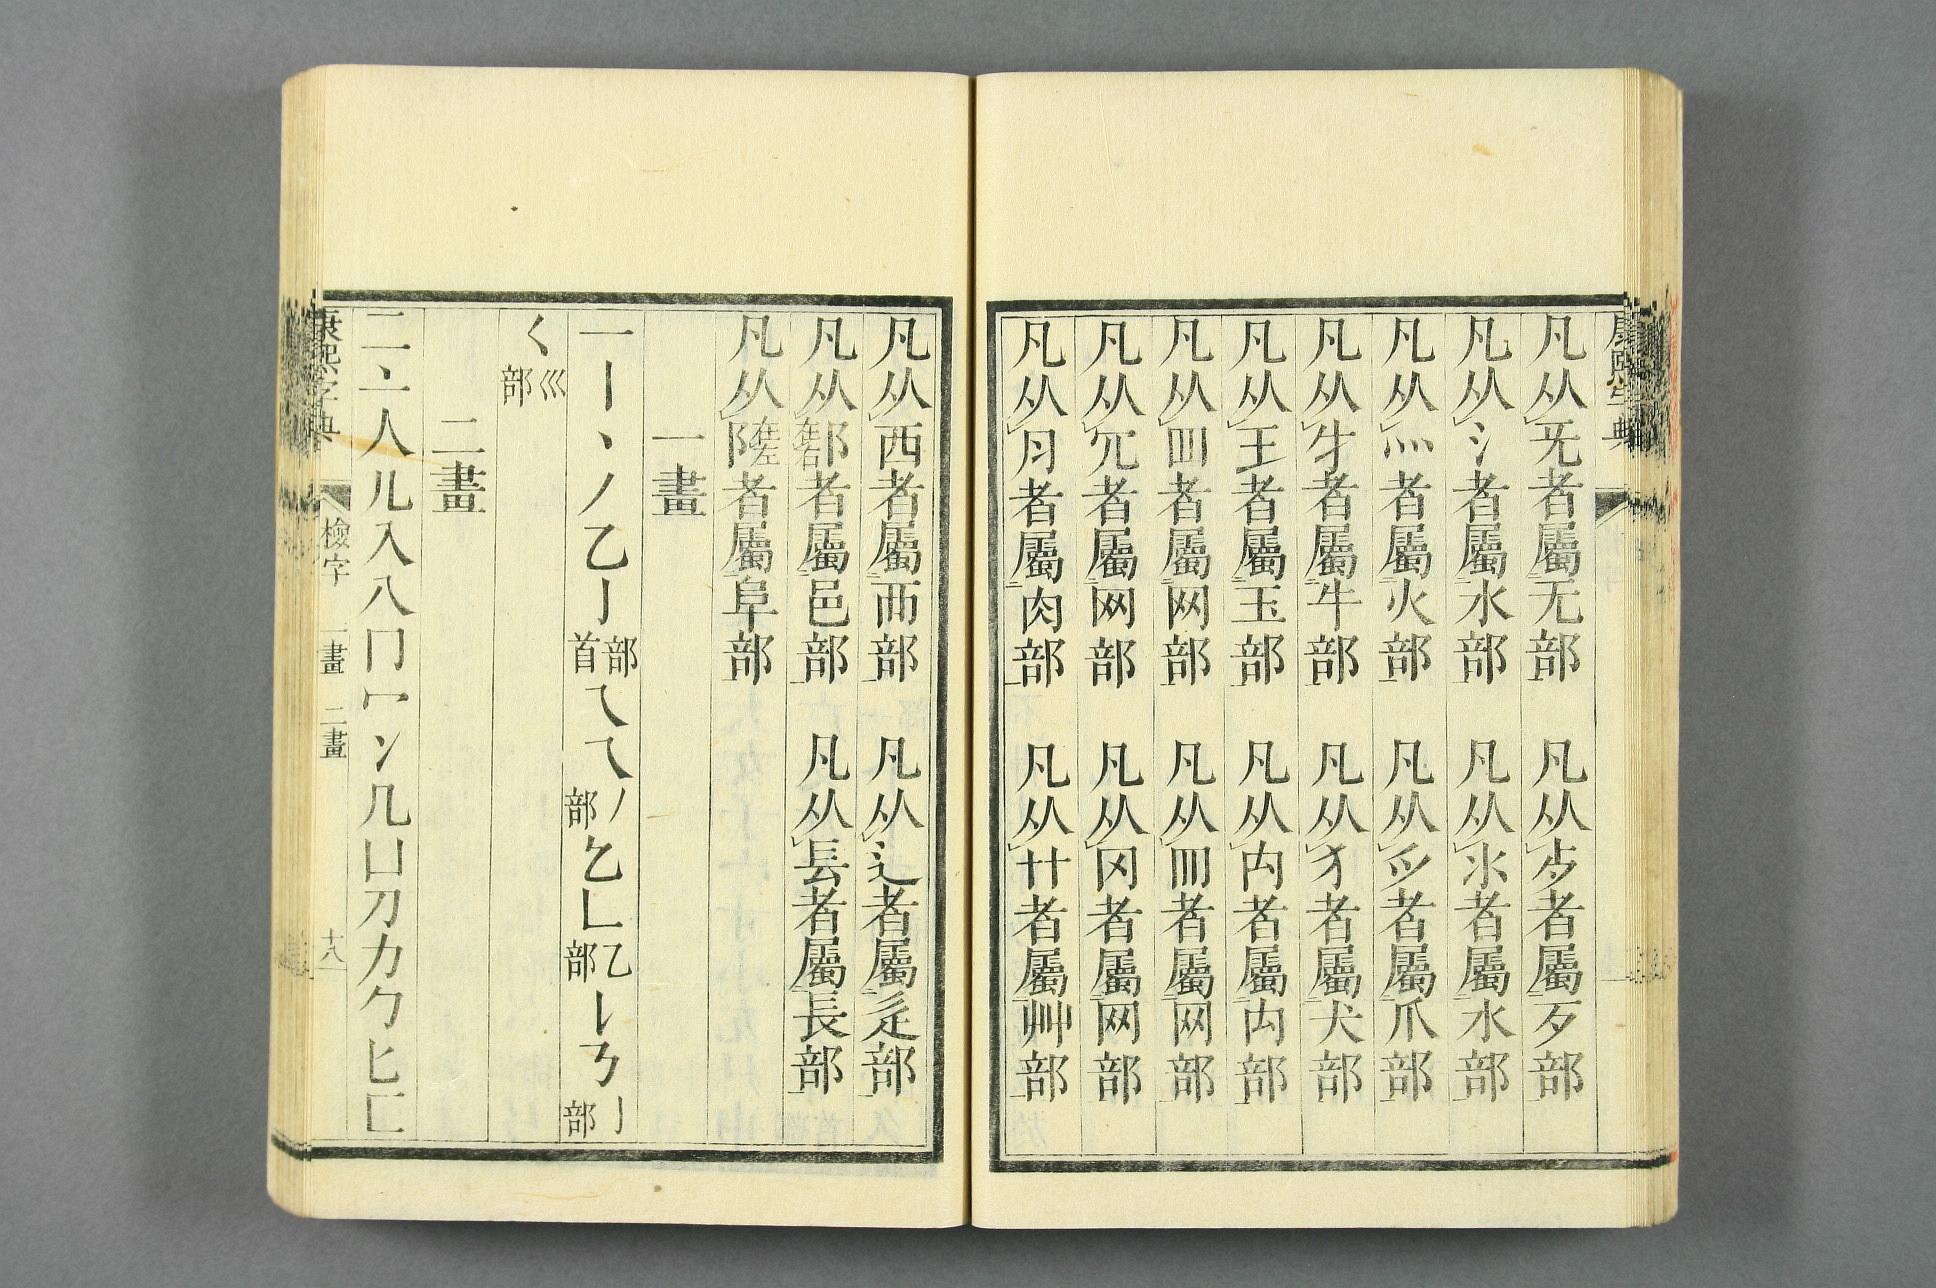 康熙字典
凡从旡者屬无部　凡从歺者屬歹部
凡从氵者屬水部　凡从氺者屬水部
凡从灬者屬火部　凡从爫者屬爪部
凡从牜者屬牛部　凡从犭者屬犬部
凡从王者屬玉部　凡从禸者屬禸部
凡从罒者屬网部　凡从者屬网部
凡从者屬网部　凡从冈者屬网部
凡从月者屬肉部　凡从艹者屬艸部
凡从西者屬襾部　凡从辶者屬辵部
凡从阝在右者屬邑部　凡从镸者屬長部
凡从阝在左者屬阜部
一畫
一丨丶丿乙亅部首乀乁丿部乞乚乙部𠄌㇉亅部
く巛部
二畫
二亠人儿入八冂冖冫几凵刀力勹匕匚
康熙字典
檢字
一畫　二畫
十八